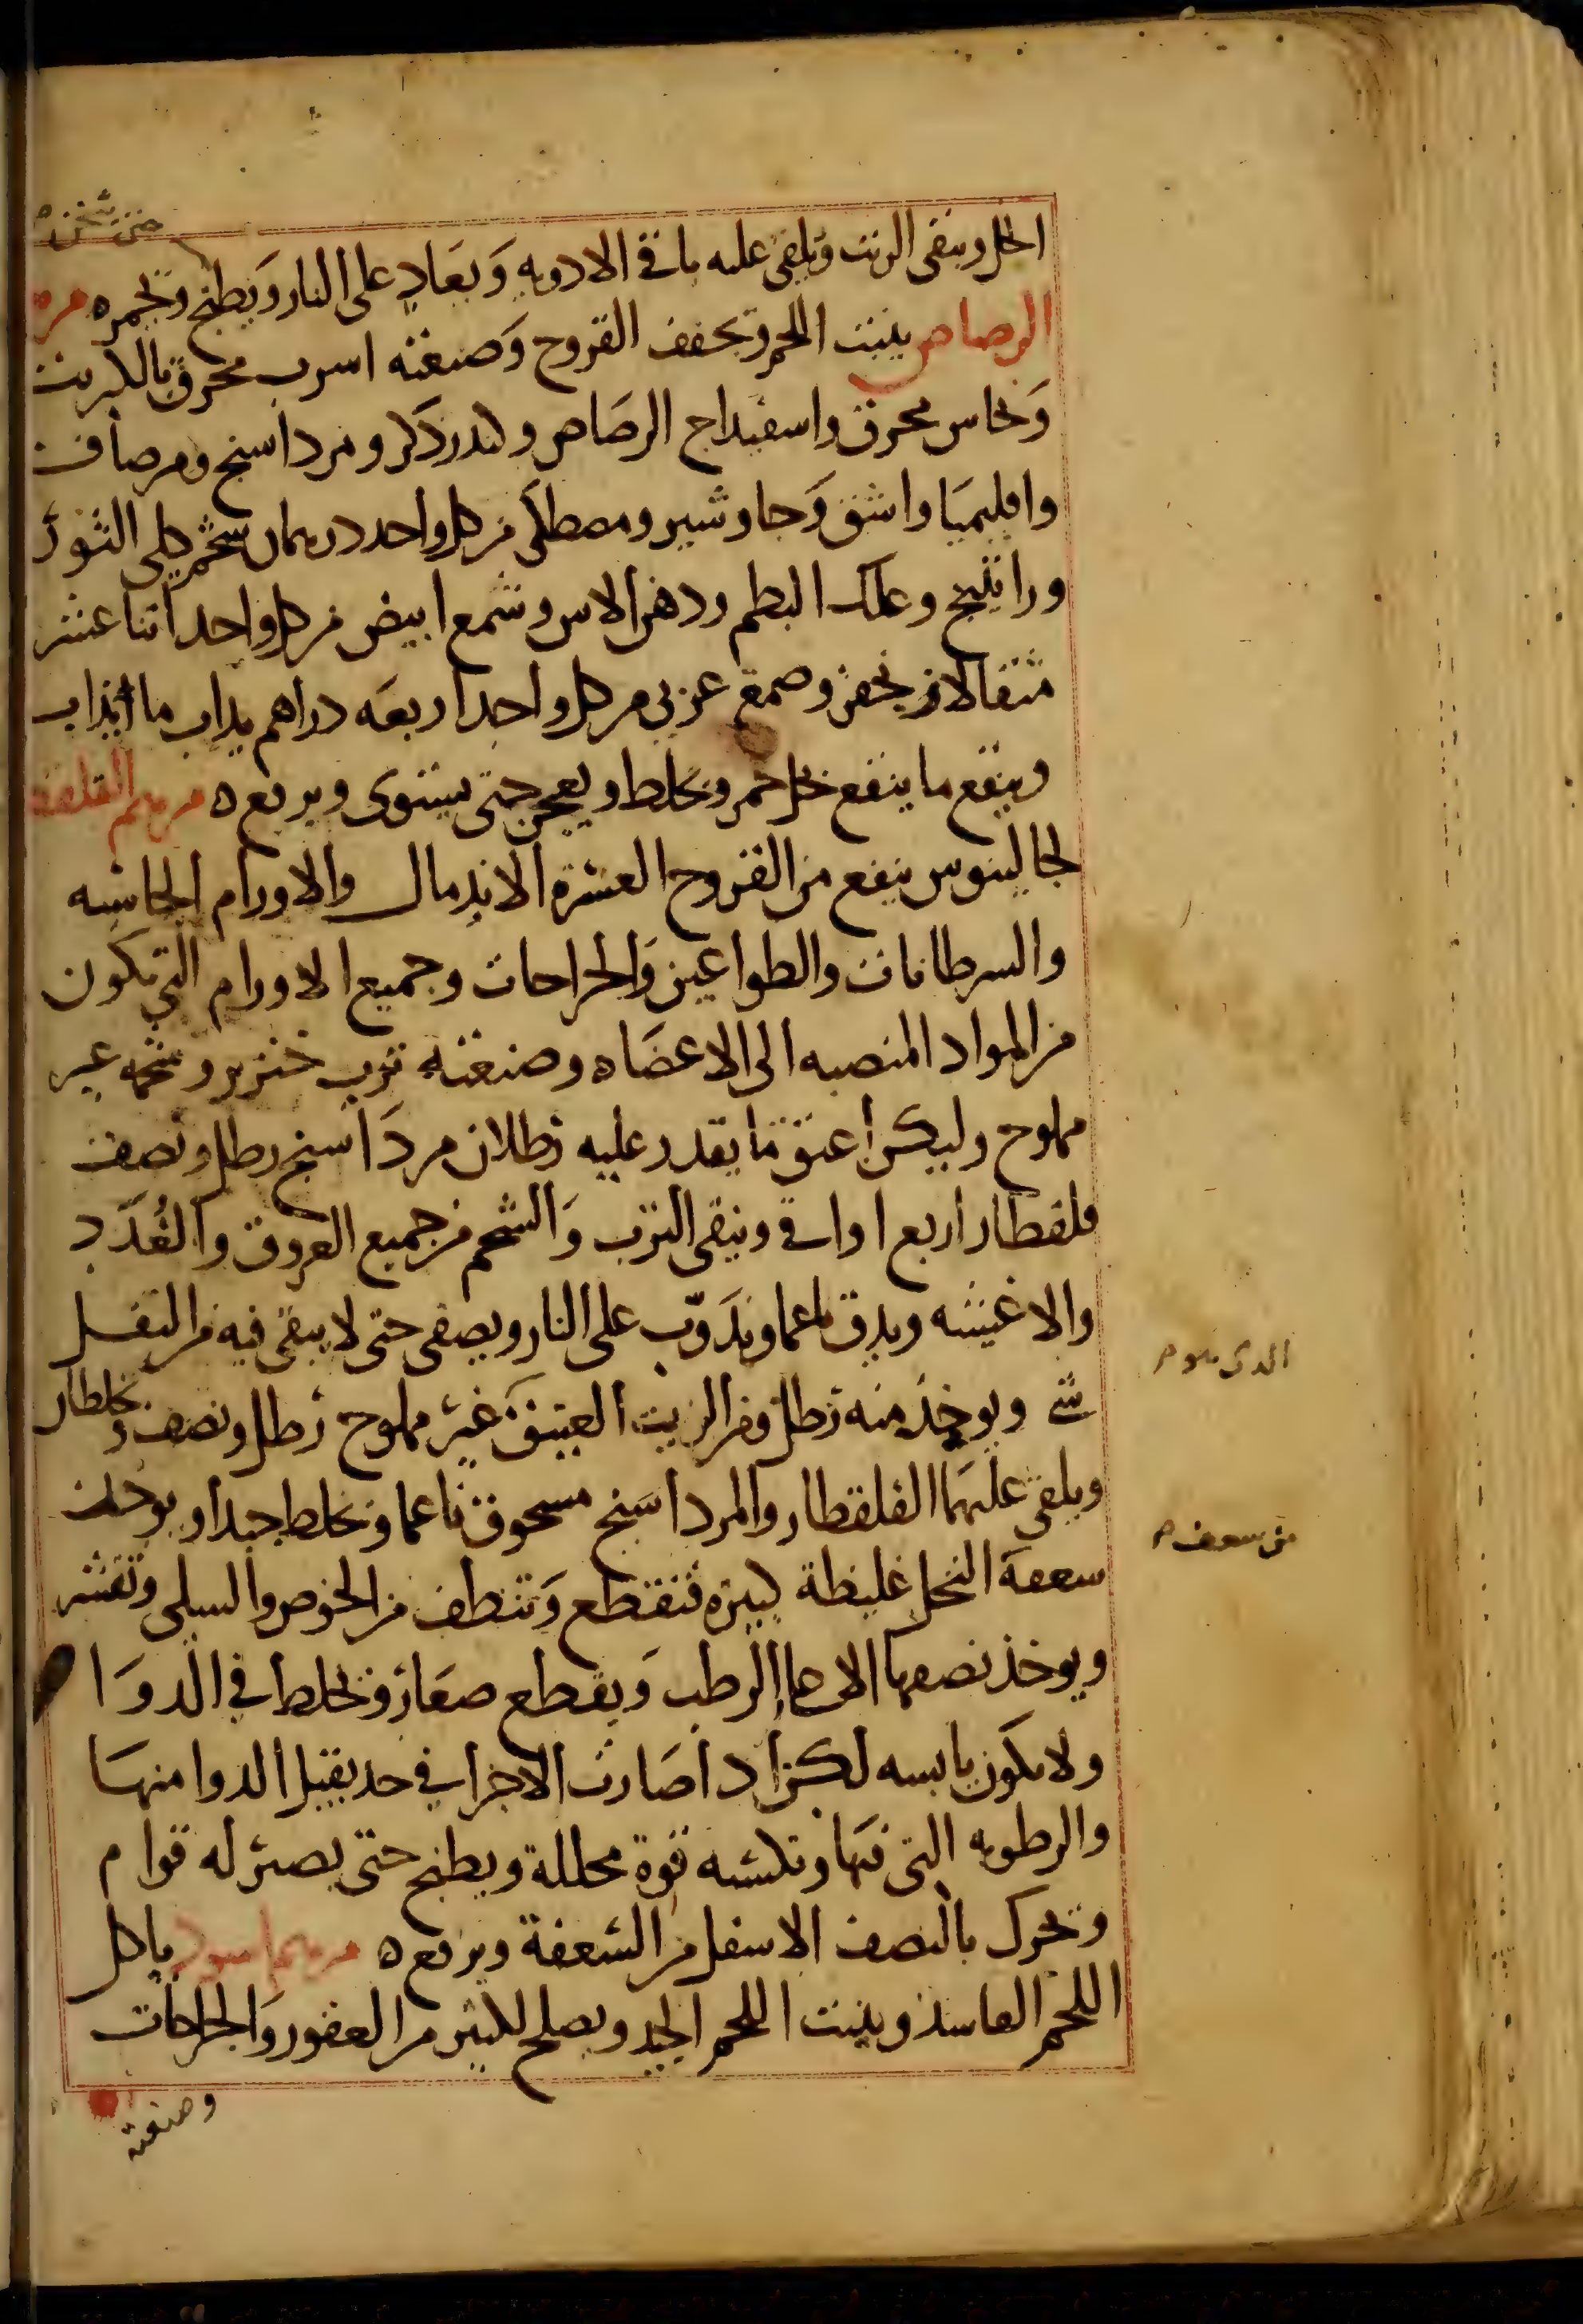 حتى يثخن
الخل ويبقى الزيت ويلقى عليه باقي الادويه وَيعَاد على النار وَيطبخ وبحمره مرهم
الرصاص ينبت اللحم ويجفف القروح وَصنعته اسرب محرق بالكبريت
وَنحاس محرق واسفيداج الرصَاص وكندر ذكر ومرداسنج ومرصاف
واقليميَا واشق وَجاوشير ومصطكَى من كل واحد درهمان شحم كلى الثور
وراتينج وعلك البطم ودهن الاس وشمع ابيض من كل واحد اثنا عشر
مثقالا زنجفر وصمغ عربي من كل واحد اربعَه دراهم يذاب ما انذاب
وينقع ما ينقع بخل خمر ويخلط ويعجن حتى يستوي ويرفع ه مرهم القلقطار
لجالينوس ينفع من القروح العسرة الاندمال والاورام الجاسيه
والسرطانات والطواعين وَالخراجات وجميع الاورام التي تكون
من المواد المنصبه الى الاعضَاه وصنعته ثرب خنزير وشحمه غير
مملوح وليكن اعتق مَا يقدر عليه رطلان مردَاسنج رطل ونصف
قلقطار اربع اواق وينقى الثرب وَالشحم من جميع العروق وَالغُدَد
والاغشيه ويدق ناعما ويذَوّب على النار ويصفى حتى لا يبقى فيه من الثفل
شي ويوخذ منه رطل ومن الزيت العتيق غَير مملوح رطل ونصف ويخلطان
ويلقى عليهمَا القلقطار والمرداسَنج مسحوق ناعما ويخلط جيدا ويوخذ
سعفة النخل غليظة كبيره فتقطع وَتنظف من الخوص والسلى وتقشر
ويوخذ نصفها الاعلى الرطب وَيقطع صغار ويخلط في الدوَا
ولا يكون يابسه لكن اذا صَارت الاجزا في حد يقبل الدوا منهَا
والرطوبه التي فيهَا وتكسبه قوة محللة ويطبخ حتى يصير له قوام
ويحرك بالنصف الاسفل من السعفة ويرفع ه مرهم اسود ياكل
اللحم الفاسد وينبت اللحم الجيد ويصلح لكثير من العقور وَالجراحات
وصنعته
من سعف